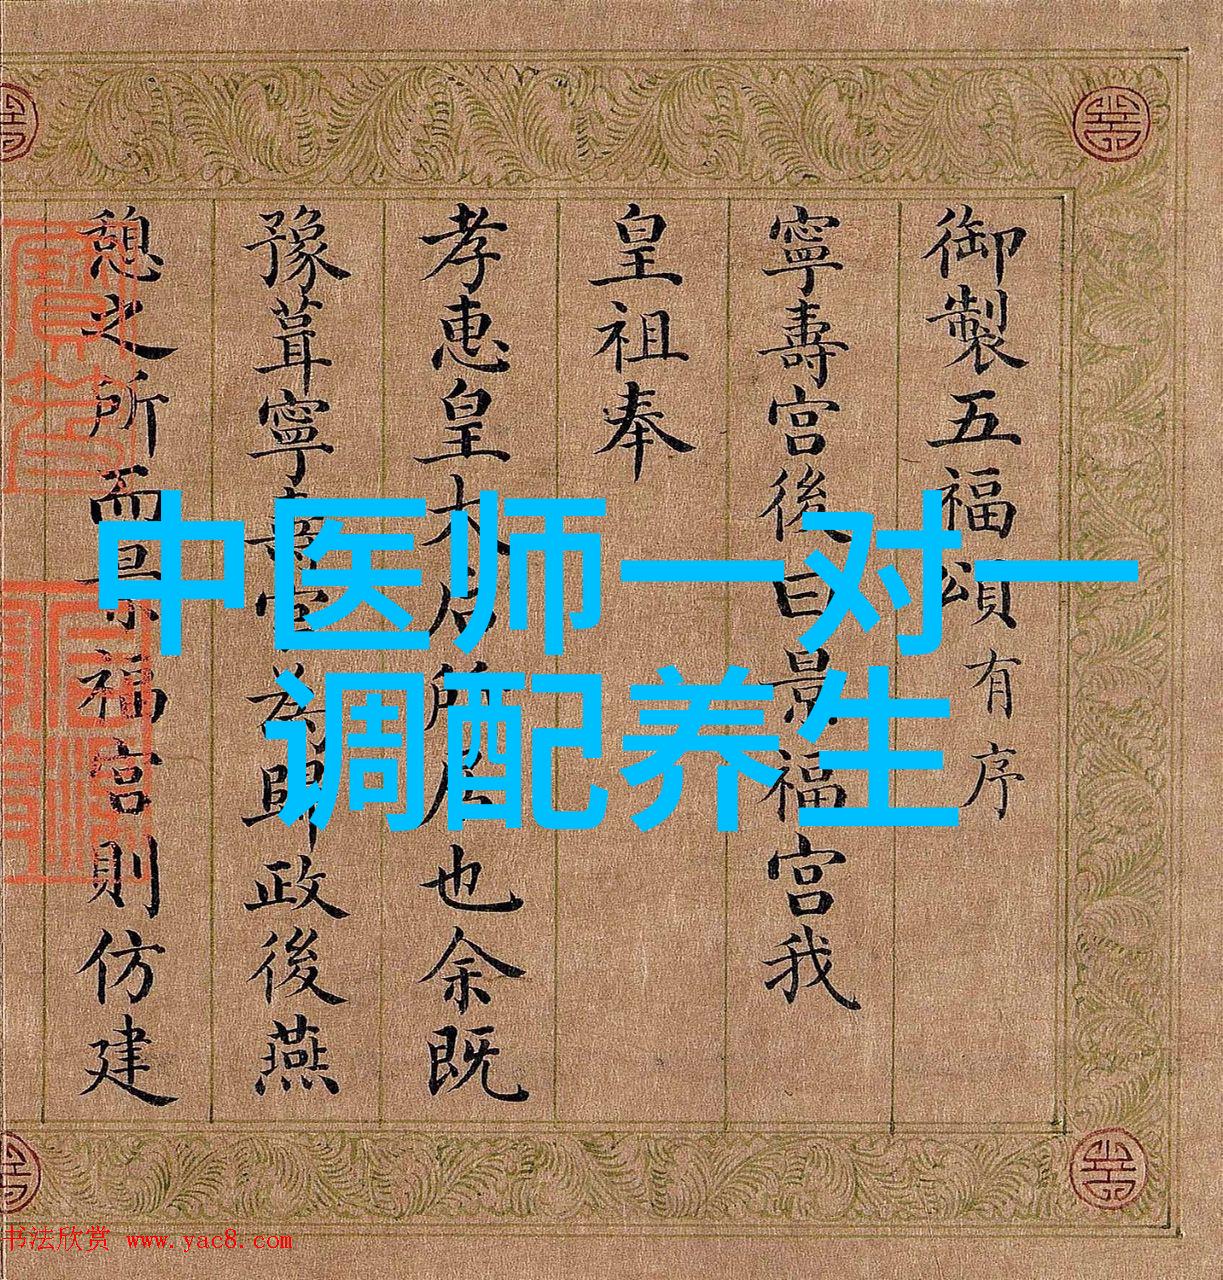 御製五福頌有序
寧壽宫後曰景福宫我
皇祖奉
孝惠皇太后所居也余既
豫葺寧壽宫為歸政後燕
憩之所而景福宫則仿建
中医师一对一
调配养生
书法欣赏 www.yac8.com